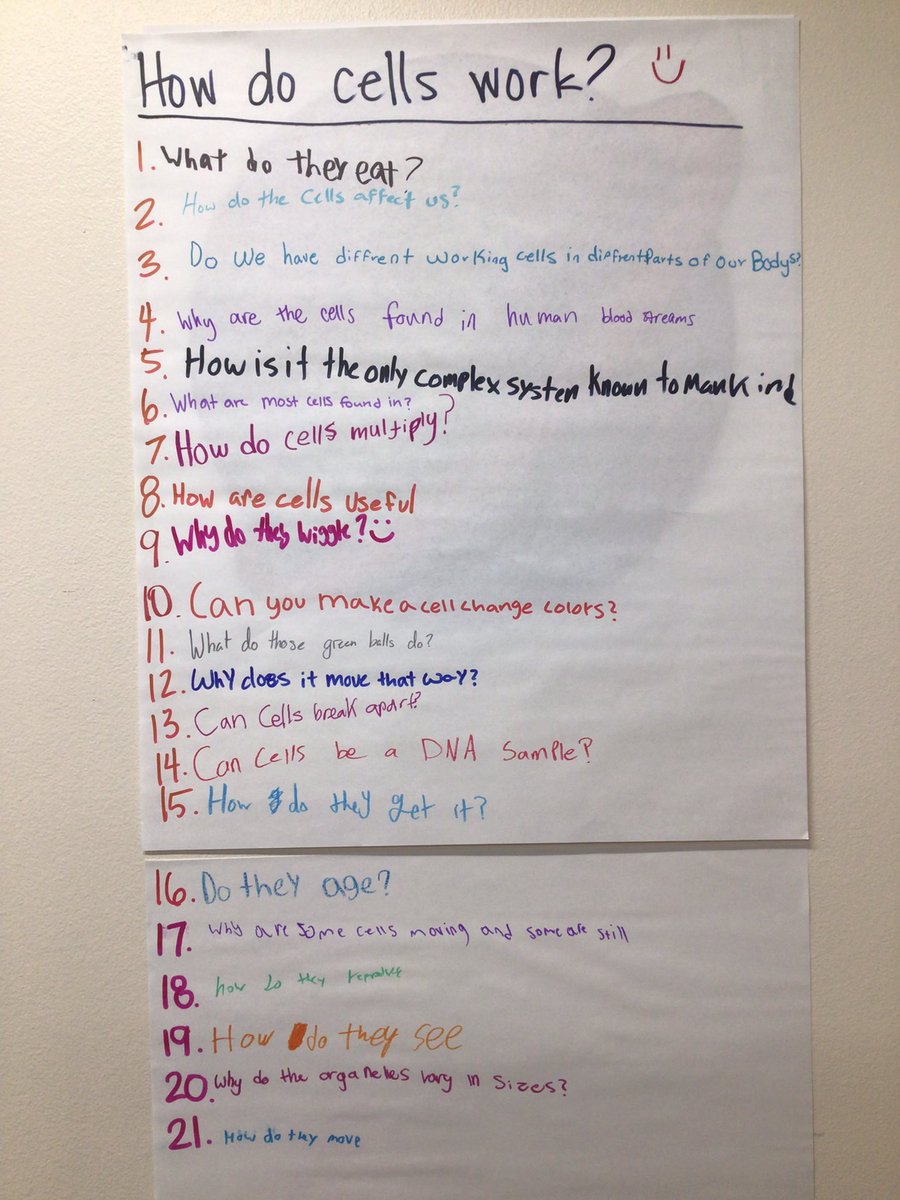 How do cells work?
1. What do they eat?
2. How do the Cells affect us?
3. Do We have diffrent working cells in diffrent Parts of Our Bodys?
4. Why are the cells found in human blood streams
5. How is it the only complex systen known to Mankind
6. What are most cells found in?
7. How do cells multiply?
8. How are cells useful
9. Why do they wiggle?
10. Can you make a cell change colors?
11. What do those green balls do?
12. Why does it move that way?
13. Can Cells break apart?
14. Can Cells be a DNA Sample?
15. How do they get it?
16. Do they age?
17. Why are some cells moving and some are still
18. how do they reproduce
19. How do they see
20. Why do the organelles vary in sizes?
21. How do they move